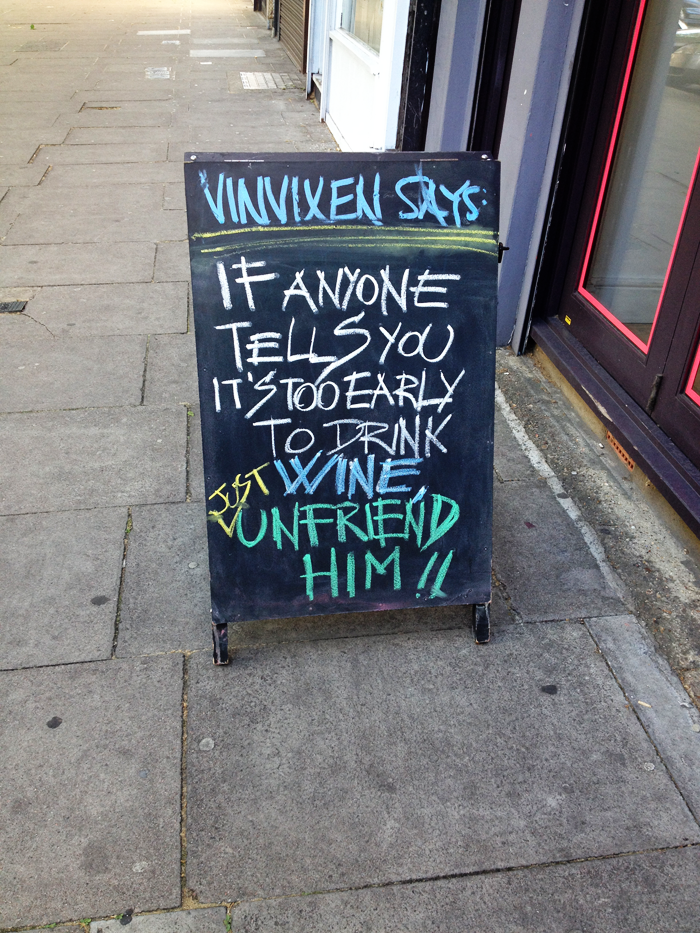 VINVIXEN SAYS:
IF ANYONE
TELLS YOU
IT'S TOO EARLY
TO DRINK
WINE,
JUST
UNFRIEND
HIM!!